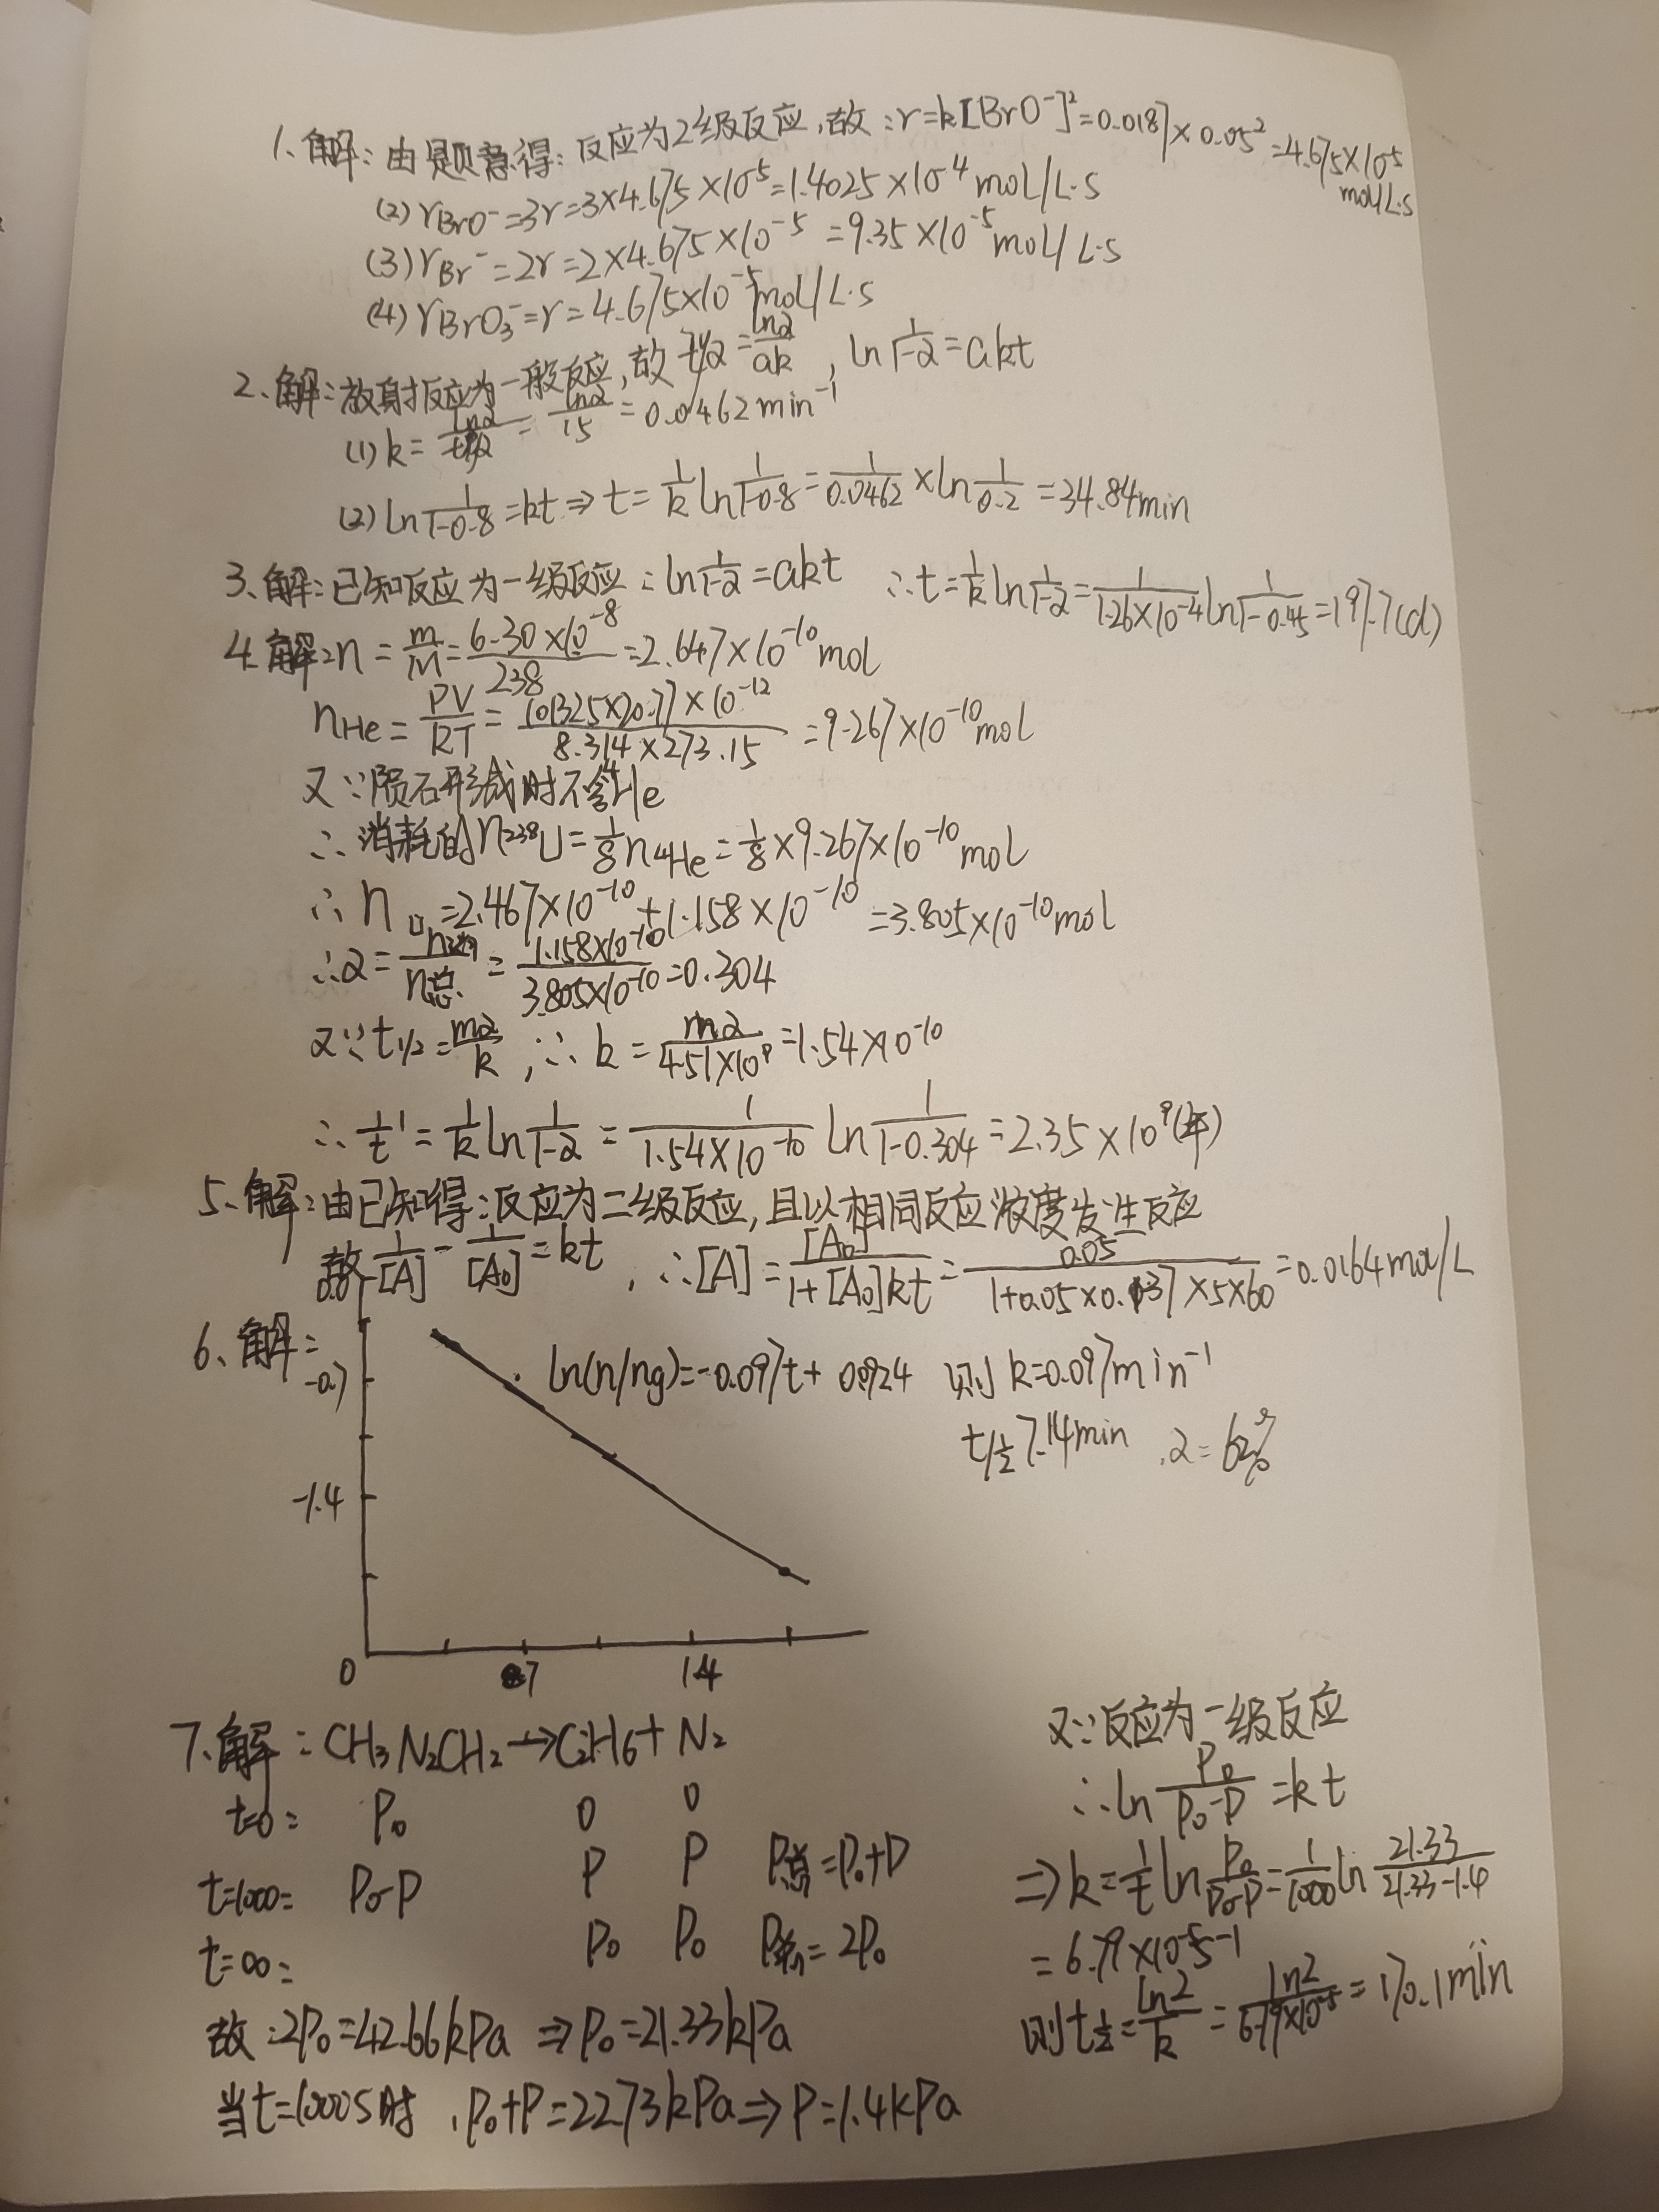 1、解:由题意得:反应为2级反应,故:r=k[BrO⁻]²=0.0187×0.05²=4.675×10⁻⁵
mol/L·S
(2) rBrO⁻=3r=3×4.675×10⁻⁵=1.4025×10⁻⁴mol/L·S
(3) rBr⁻=2r=2×4.675×10⁻⁵=9.35×10⁻⁵mol/L·S
(4) rBrO₃⁻=r=4.675×10⁻⁵mol/L·S
2、解:放射反应为一般反应,故t1/2=ln2/ak, ln1/1-α=akt
(1) k=ln2/t1/2=ln2/15=0.0462min⁻¹
(2) ln1/1-0.8=kt⇒t=1/k ln1/1-0.8=1/0.0462×ln1/0.2=34.84min
3、解:已知反应为一级反应∴ln1/1-α=akt ∴t=1/k ln1/1-α=1/1.26×10⁻⁴ ln1/1-0.45=197.7(d)
4.解:n=m/M=6.30×10⁻⁸/238=2.647×10⁻¹⁰mol
nHe=PV/RT=101325×20.77×10⁻¹²/8.314×273.15=9.267×10⁻¹⁰mol
又∵陨石形成时不含⁴He
∴消耗的n²³⁸U=1/8n⁴He=1/8×9.267×10⁻¹⁰mol
∴n=2.467×10⁻¹⁰+1.158×10⁻¹⁰=3.805×10⁻¹⁰mol
∴α=n/n总=1.158×10⁻¹⁰/3.805×10⁻¹⁰=0.304
又∵t1/2=ln2/k,∴k=ln2/4.51×10⁹=1.54×10⁻¹⁰
∴t'=1/k ln1/1-α=1/1.54×10⁻¹⁰ ln1/1-0.304=2.35×10⁹(年)
5、解:由已知得:反应为二级反应,且以相同反应浓度发生反应
故1/[A]-1/[A₀]=kt,∴[A]=[A₀]/1+[A₀]kt=0.05/1+0.05×0.137×5×60=0.0164mol/L
6、解:
0.0
-0.7
-1.4
0 7 14
ln(n/ng)=-0.097t+0.0924 则k=0.097min⁻¹
t1/2 7.14min ,α=62%
7、解:CH₃N₂CH₂→C₂H₆+N₂
t=0: P₀ 0 0
t=1000: P₀-P P P P总=P₀+P
t=∞: P₀ P₀ P总=2P₀
故:2P₀=42.66kPa⇒P₀=21.33kPa
当t=1000S时,P₀+P=22.73kPa⇒P=1.4kPa
又∵反应为一级反应
∴ln P₀/P₀-P=kt
⇒k=1/t ln P₀/P₀-P=1/1000 ln 21.33/21.33-1.4
=6.79×10⁻⁵S⁻¹
则t1/2=ln2/k=ln2/6.79×10⁻⁵=170.1min